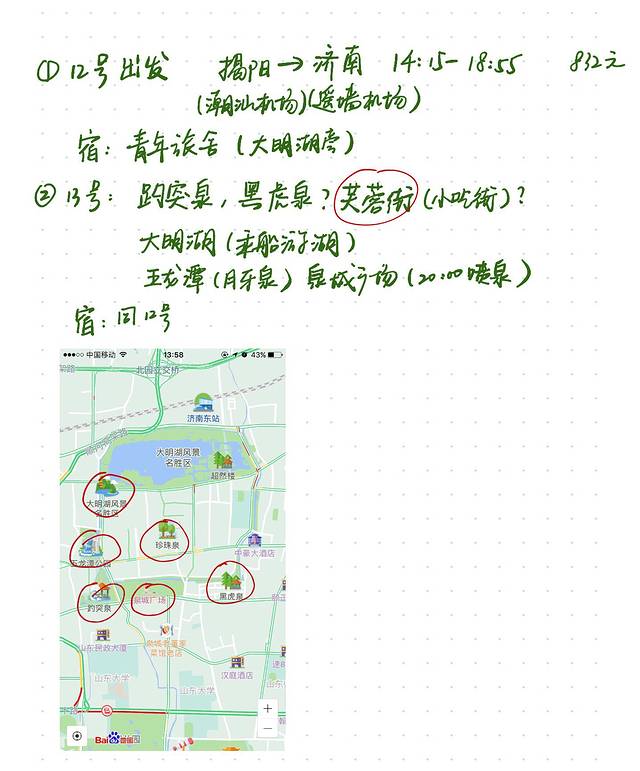 ① 12号出发 揭阳→济南 14:15-18:55 832元
(潮汕机场)(遥墙机场)
宿: 青年旅舍 (大明湖旁)
② 13号: 趵突泉, 黑虎泉? 芙蓉街 (小吃街)?
大明湖 (乘船游湖)
五龙潭 (月牙泉) 泉城广场 (20:00喷泉)
宿: 同12号
中国移动 13:58 43%
北园立交桥
济南东站
大明湖风景
名胜区
超然楼
大明湖风景
名胜区
珍珠泉
中豪大酒店
五龙潭公园
趵突泉
泉城广场
黑虎泉
山东民政大厦
汉庭酒店
山东大学
山东大学
+
-
Bai 地图